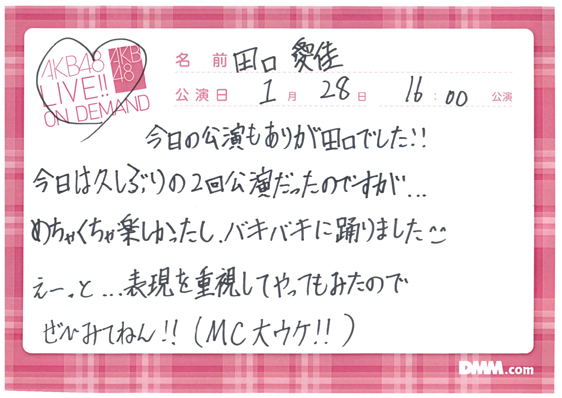 AKB48
LIVE!!
ON DEMAND
AKB
48
名前 田口 愛佳
公演日 1月 28日 16:00 公演
今日の公演もありが田口でした!!
今日は久しぶりの2回公演だったのですが...
めちゃくちゃ楽しかったし、バキバキに踊りました
えーっと...表現を重視してやってもみたので
ぜひみてねん!!(MC大ウケ!!)
DMM.com